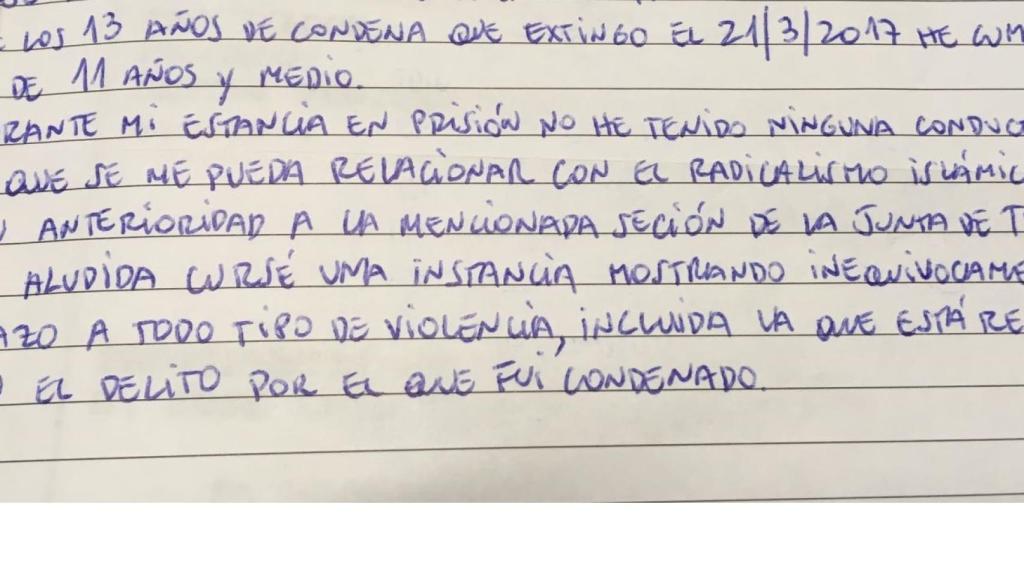 LOS 13 AÑOS DE CONDENA QUE EXTINGO EL 21/3/2017 HE CUM
DE 11 AÑOS Y MEDIO.
RANTE MI ESTANCIA EN PRISIÓN NO HE TENIDO NINGUNA CONDUC
QUE SE ME PUEDA RELACIONAR CON EL RADICALISMO ISLÁMIC
ANTERIORIDAD A LA MENCIONADA SECIÓN DE LA JUNTA DE T
ALUDIDA CURSÉ UMA INSTANCIA MOSTRANDO INEQUIVOCAME
AZO A TODO TIPO DE VIOLENCIA, INCLUIDA LA QUE ESTÁ RE
EL DELITO POR EL QUE FUI CONDENADO.